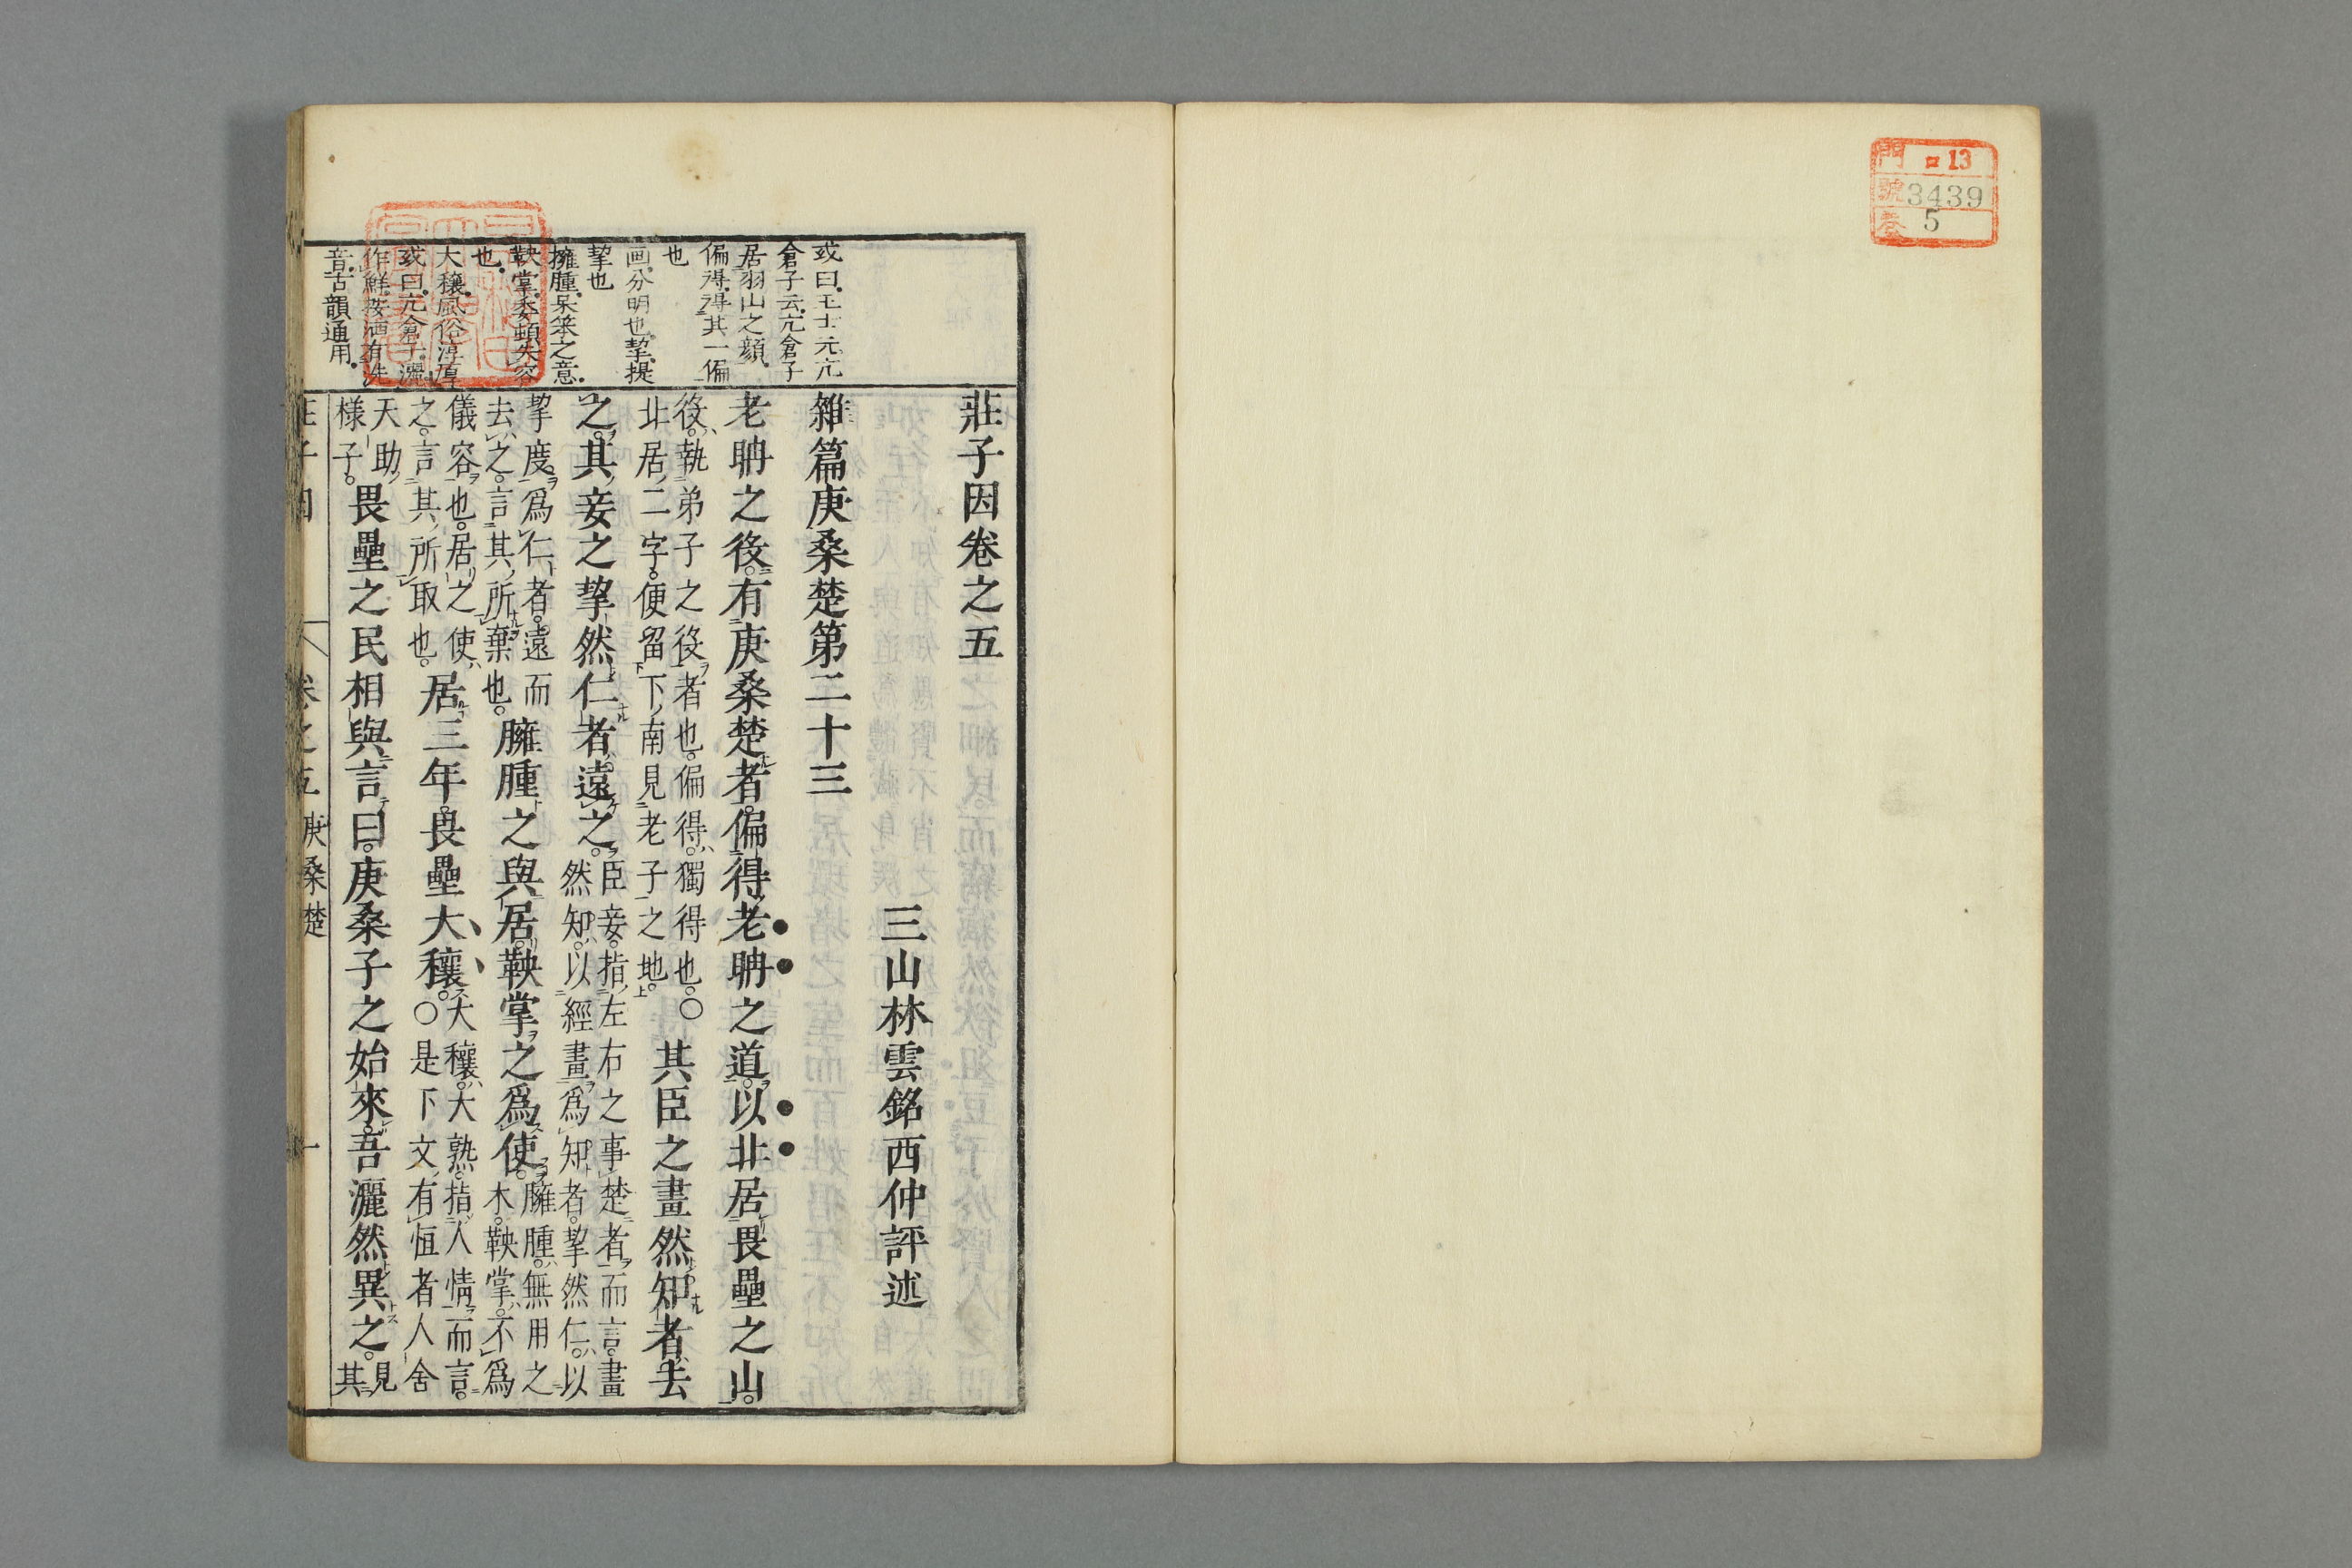 門 ロ13
號 3439
卷 5
莊子因卷之五
三山林雲銘西仲評述
雜篇庚桑楚第二十三
老聃之役。有庚桑楚者。偏得老聃之道。以北居畏壘之山。
役。執弟子之役者也。偏得。獨得也。○
北居二字。便留下南見老子之地。
其臣之畫然知者去
之。其妾之挈然仁者遠之。
臣妾。指左右之事楚者而言。畫
然知。以經畫爲知者。挈然仁。以
挈度爲仁者。遠而
去之。言其所棄也。
臃腫之與居。鞅掌之爲使。
臃腫。無用之
木。鞅掌。不爲
儀容也。居之使
之。言其所取也。
居三年。畏壘大穰。
大穰。大熟。指人情而言。
○是下文有恒者人舍
天助
樣子。
畏壘之民相與言曰。庚桑子之始來。吾灑然異之。
見
其
或曰。王士元亢
倉子云。亢倉子
居羽山之顏。
偏得。得其一偏
也
画。分明也。挈。提
挈也
擁腫。呆笨之意。
鞅掌。委頓失容
也。
大穰。風俗淳厚
或曰。亢倉子。灑
作鮮。按洒有洗
音。古韻通用。
莊子因 卷之五 庚桑楚 一